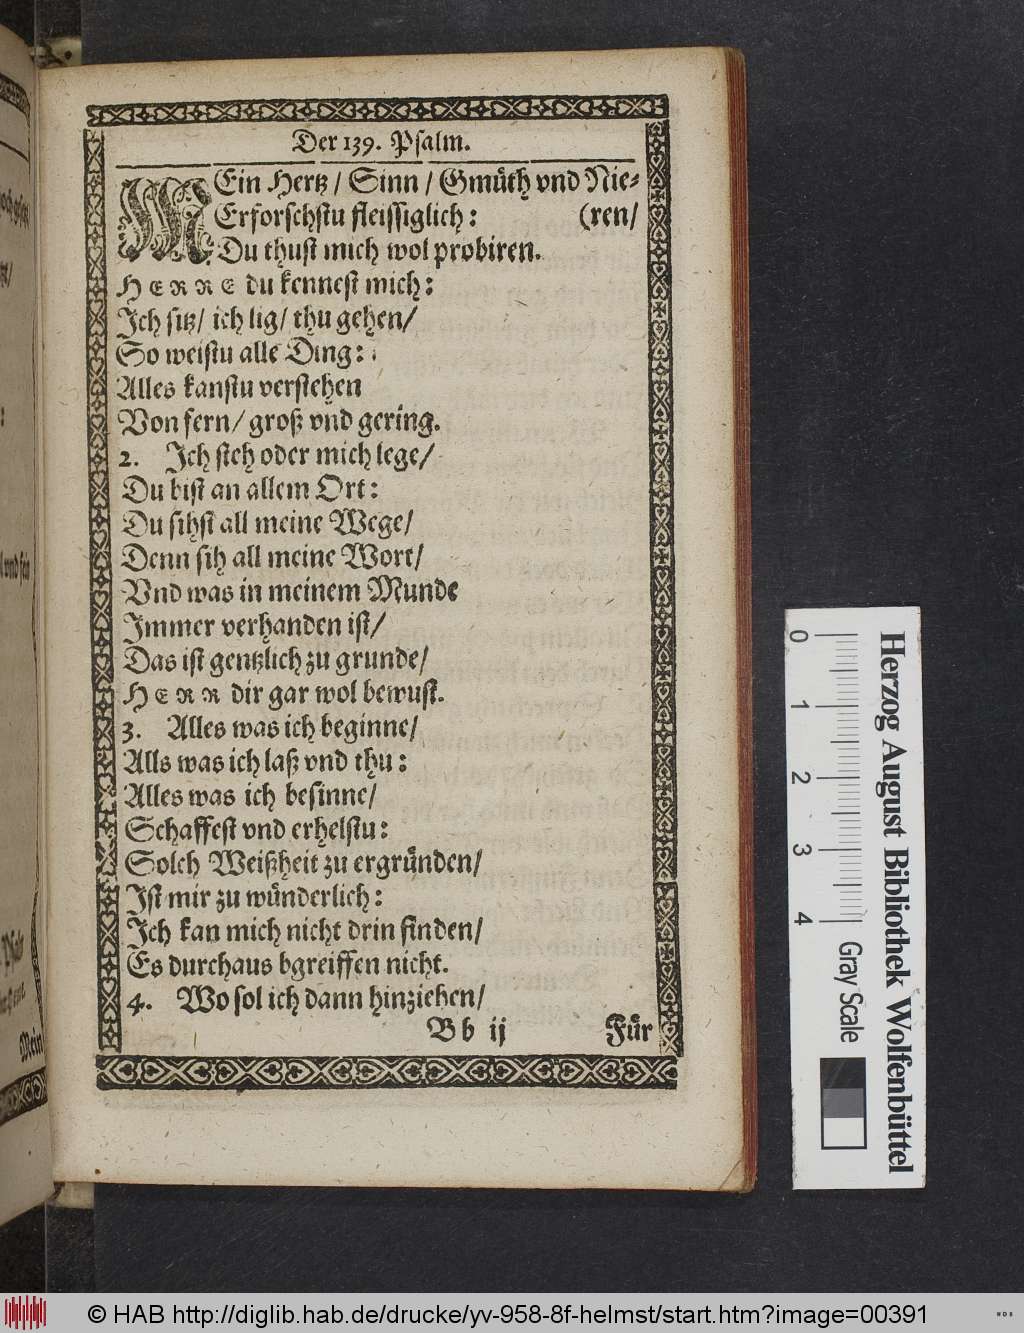 Der 139. Psalm.
MEin Hertz / Sinn / Gmüth vnd Nie-
Erforschstu fleissiglich: (ren/
Du thust mich wol probiren.
HERRE du kennest mich:
Ich sitz/ ich lig/ thu gehen/
So weistu alle Ding:
Alles kanstu verstehen
Von fern/ groß vnd gering.
2. Ich steh oder mich lege/
Du bist an allem Ort:
Du sihst all meine Wege/
Denn sih all meine Wort/
Vnd was in meinem Munde
Immer verhanden ist/
Das ist gentzlich zu grunde/
HERR dir gar wol bewust.
3. Alles was ich beginne/
Alls was ich laß vnd thu:
Alles was ich besinne/
Schaffest vnd erhelstu:
Solch Weißheit zu ergründen/
Ist mir zu wünderlich:
Ich kan mich nicht drin finden/
Es durchaus bgreiffen nicht.
4. Wo sol ich dann hinziehen/
Bb ij Für
Mein
0 1 2 3 4
Gray Scale
Herzog August Bibliothek Wolfenbüttel
© HAB http://diglib.hab.de/drucke/yv-958-8f-helmst/start.htm?image=00391